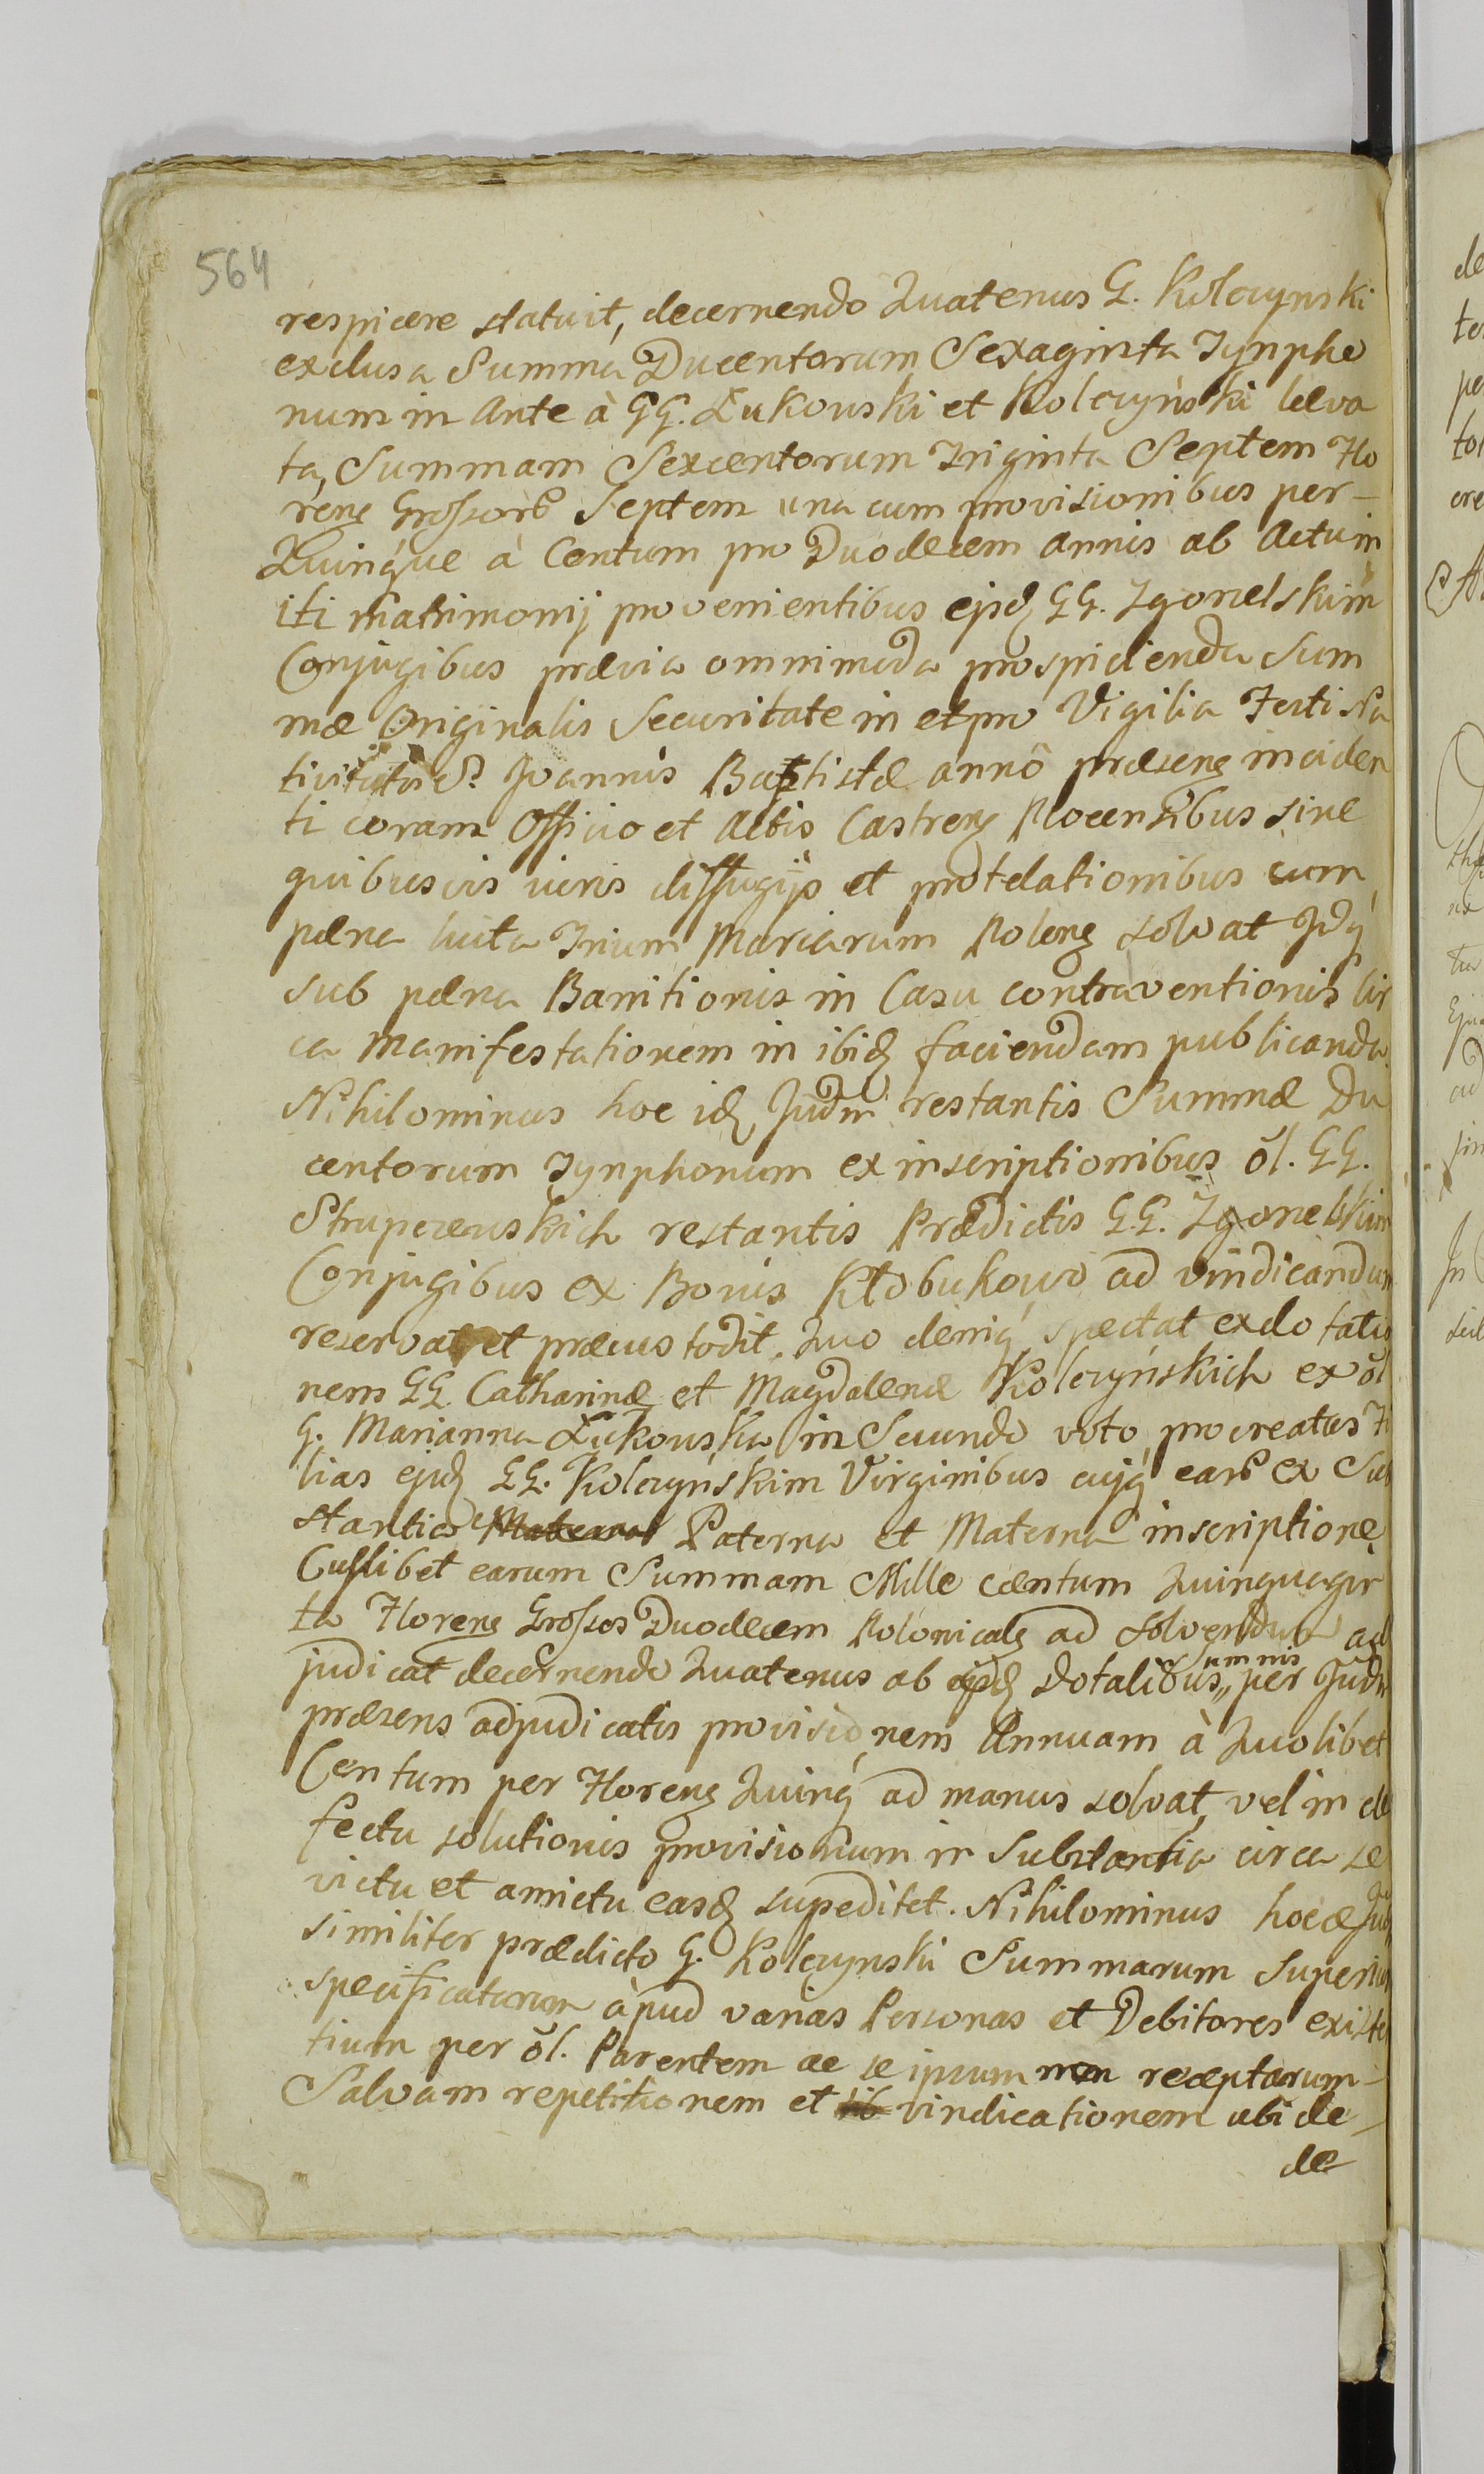 564
respicere statuit, decernendo Quatenus G. Kolczynski
exclusa Summa Ducentorum Sexaginta Tynpho
num in Ante à GG. Łukowski et Kolczyński leva
ta, Summam Sexcentorum Triginta Septem Flo
reng Grossorū Septem una cum provisionibus per-
Quinque à Centum pro Duodecem annis ab Actu in
iti matrimonij provenientibus ejsd GG. Zgorzelskim
Conjugibus prævia omnimoda prospicienda Sum
mæ Originalis Securitate in et pro Vigilia Festi Na
tivitatis S. Joannis Baptistæ annô præsens inciden
ti coram Officio et Actis Castreng Plocensibus sine
quibusvis juris diffugijs et protelationibus cum
pæna luita Trium Marcarum Poleng solvat Idq́
sub pæna Banitionis in Casu contraventionis cir
ca Manifestationem in ibid faciendam publicanda.
Nihilominus hoc id Judm restantis Summæ Du
centorum Tynphonum ex inscriptionibus ōl. GG.
Strupczewskich restantis Prædictis GG. Zgorzelskim
Conjugibus ex Bonis Kłobukowo ad vindicandum
reservat et præcustodit. Quo deniq́ spectat exdotatio
nem GG. Catharinæ et Magdalenæ Kolczyńskich ex ōl
G. Marianna Łukowska in Secundo voto procreatas Fi
lias ejsd GG. Kolczyńskim Virginibus cujq́ earū ex Sub
stantia Materna Paterna et Materna inscriptione
Cuslibet earum Summam Mille centum Quinquagin
ta Floreng Grossos Duodecem Polonicalg ad solvendum ad
judicat decernendo Quatenus ab ejsd Dotalibus,, per Judm
summis
præsens adjudicatis provisionem Annuam à Quolibet
Centum per Floreng Quinq́ ad manus solvat, vel in de
fectu solutionis provisionum in Substantia circa se
victu et amictu easd supeditet. Nihilominus hocce Jud
similiter prædicto G. Kolczynski Summarum Superius
specificatarum àpud varias Personas et Debitores existen
tium per ōl. Parentem ac se ipsum non receptarum-
Salvam repetitionem et ib vindicationem ubi de
de